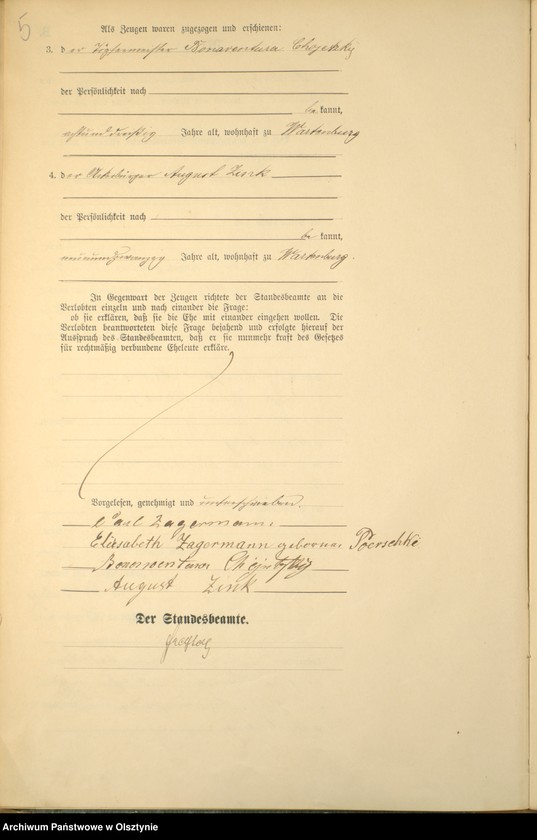 5
Als Zeugen waren zugezogen und erschienen:
3. der Töpfermeister Bonaventura
der Persönlichkeit nach
bekannt,
achtunddreißig Jahre alt, wohnhaft zu Wartenburg
4. der Ackerbürger August Zink
der Persönlichkeit nach
bekannt,
neunundzwanzig Jahre alt, wohnhaft zu Wartenburg.
In Gegenwart der Zeugen richtete der Standesbeamte an die
Verlobten einzeln und nach einander die Frage:
ob sie erklären, daß sie die Ehe mit einander eingehen wollen. Die
Verlobten beantworteten diese Frage bejahend und erfolgte hierauf der
Ausspruch des Standesbeamten, daß er sie nunmehr kraft des Gesetzes
für rechtmäßig verbundene Eheleute erkläre.
Vorgelesen, genehmigt und unterschrieben.
Carl Zagermann
Elisabeth Zagermann geborene Poerschke
Bonaventura
August Zink
Der Standesbeamte.
Archiwum Państwowe w Olsztynie